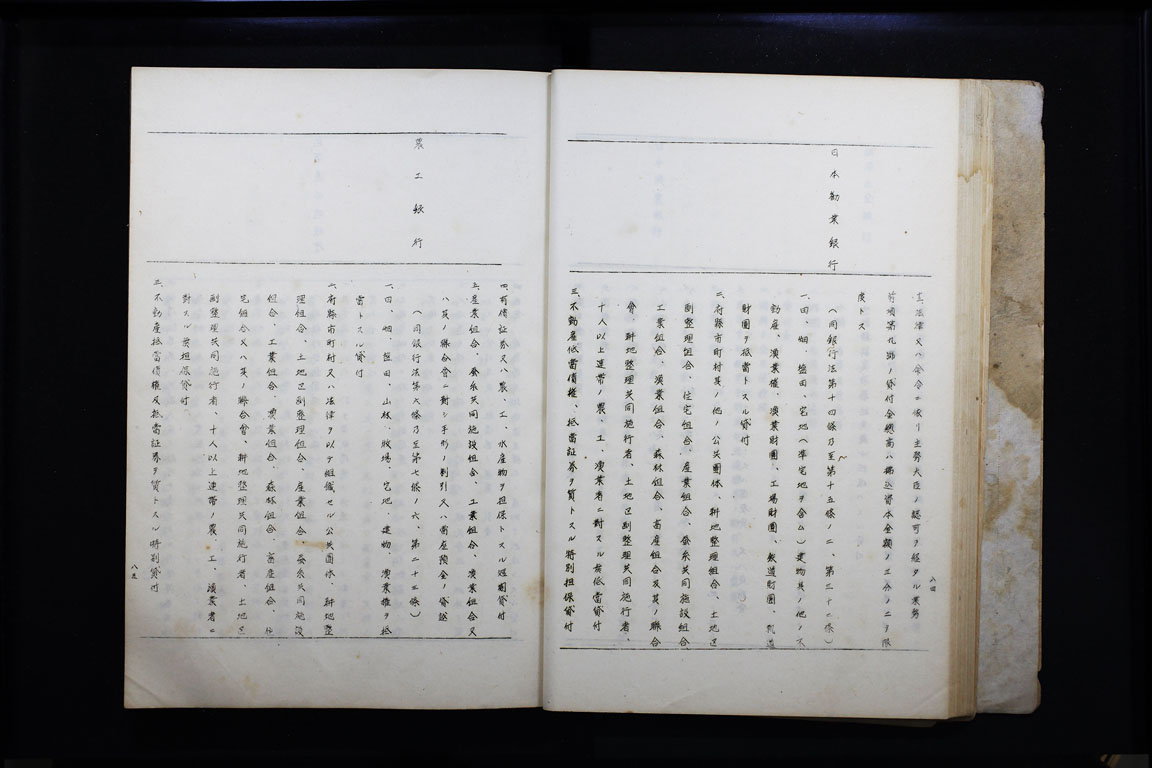 八四
十、法律又ハ命令ニ依リ主務大臣ノ認可ヲ経タル業務
前項第九号ノ貸付金総高ハ払込資本金額ノ三分ノ二ヲ限
度トス
日本勧業銀行
(同銀行法第十四條乃至第十五條ノ二、第三十二條)
一、田、畑、塩田、宅地(準宅地ヲ含ム)建物其ノ他ノ不
動産、漁業権、漁業財団、工場財団、鉄道財団、軌道
財団ヲ抵當トスル貸付
二、府縣市町村其ノ他ノ公共団体、耕地整理組合、土地区
劃整理組合、住宅組合、産業組合、蚕糸共同施設組合、
工業組合、漁業組合、森林組合、畜産組合及其ノ聯合
會、耕地整理共同施行者、土地区劃整理共同施行者、
十人以上連帯ノ農、工、漁業者ニ對スル無抵當貸付
三、不動産抵當債権、抵當証券ヲ質トスル特別担保貸付
四、有價証券又ハ農、工、水産物ヲ担保トスル短期貸付
五、産業組合、蚕糸共同施設組合、工業組合、漁業組合又
ハ其ノ聯合會ニ對シ手形ノ割引又ハ當座預金ノ貸越
農工銀行
(同銀行法第六條乃至第七條ノ六、第二十三條)
一、田、畑、塩田、山林、牧場、宅地、建物、漁業権ヲ抵
當トスル貸付
二、府縣市町村又ハ法律ヲ以テ組織セル公共団体、耕地整
理組合、土地区劃整理組合、産業組合、蚕糸共同施設
組合、工業組合、漁業組合、森林組合、畜産組合、住
宅組合又ハ其ノ聯合會、耕地整理共同施行者、土地区
劃整理共同施行者、十人以上連帯ノ農、工、漁業者ニ
對スル無担保貸付
三、不動産抵當債権及抵當証券ヲ質トスル特別貸付
八五